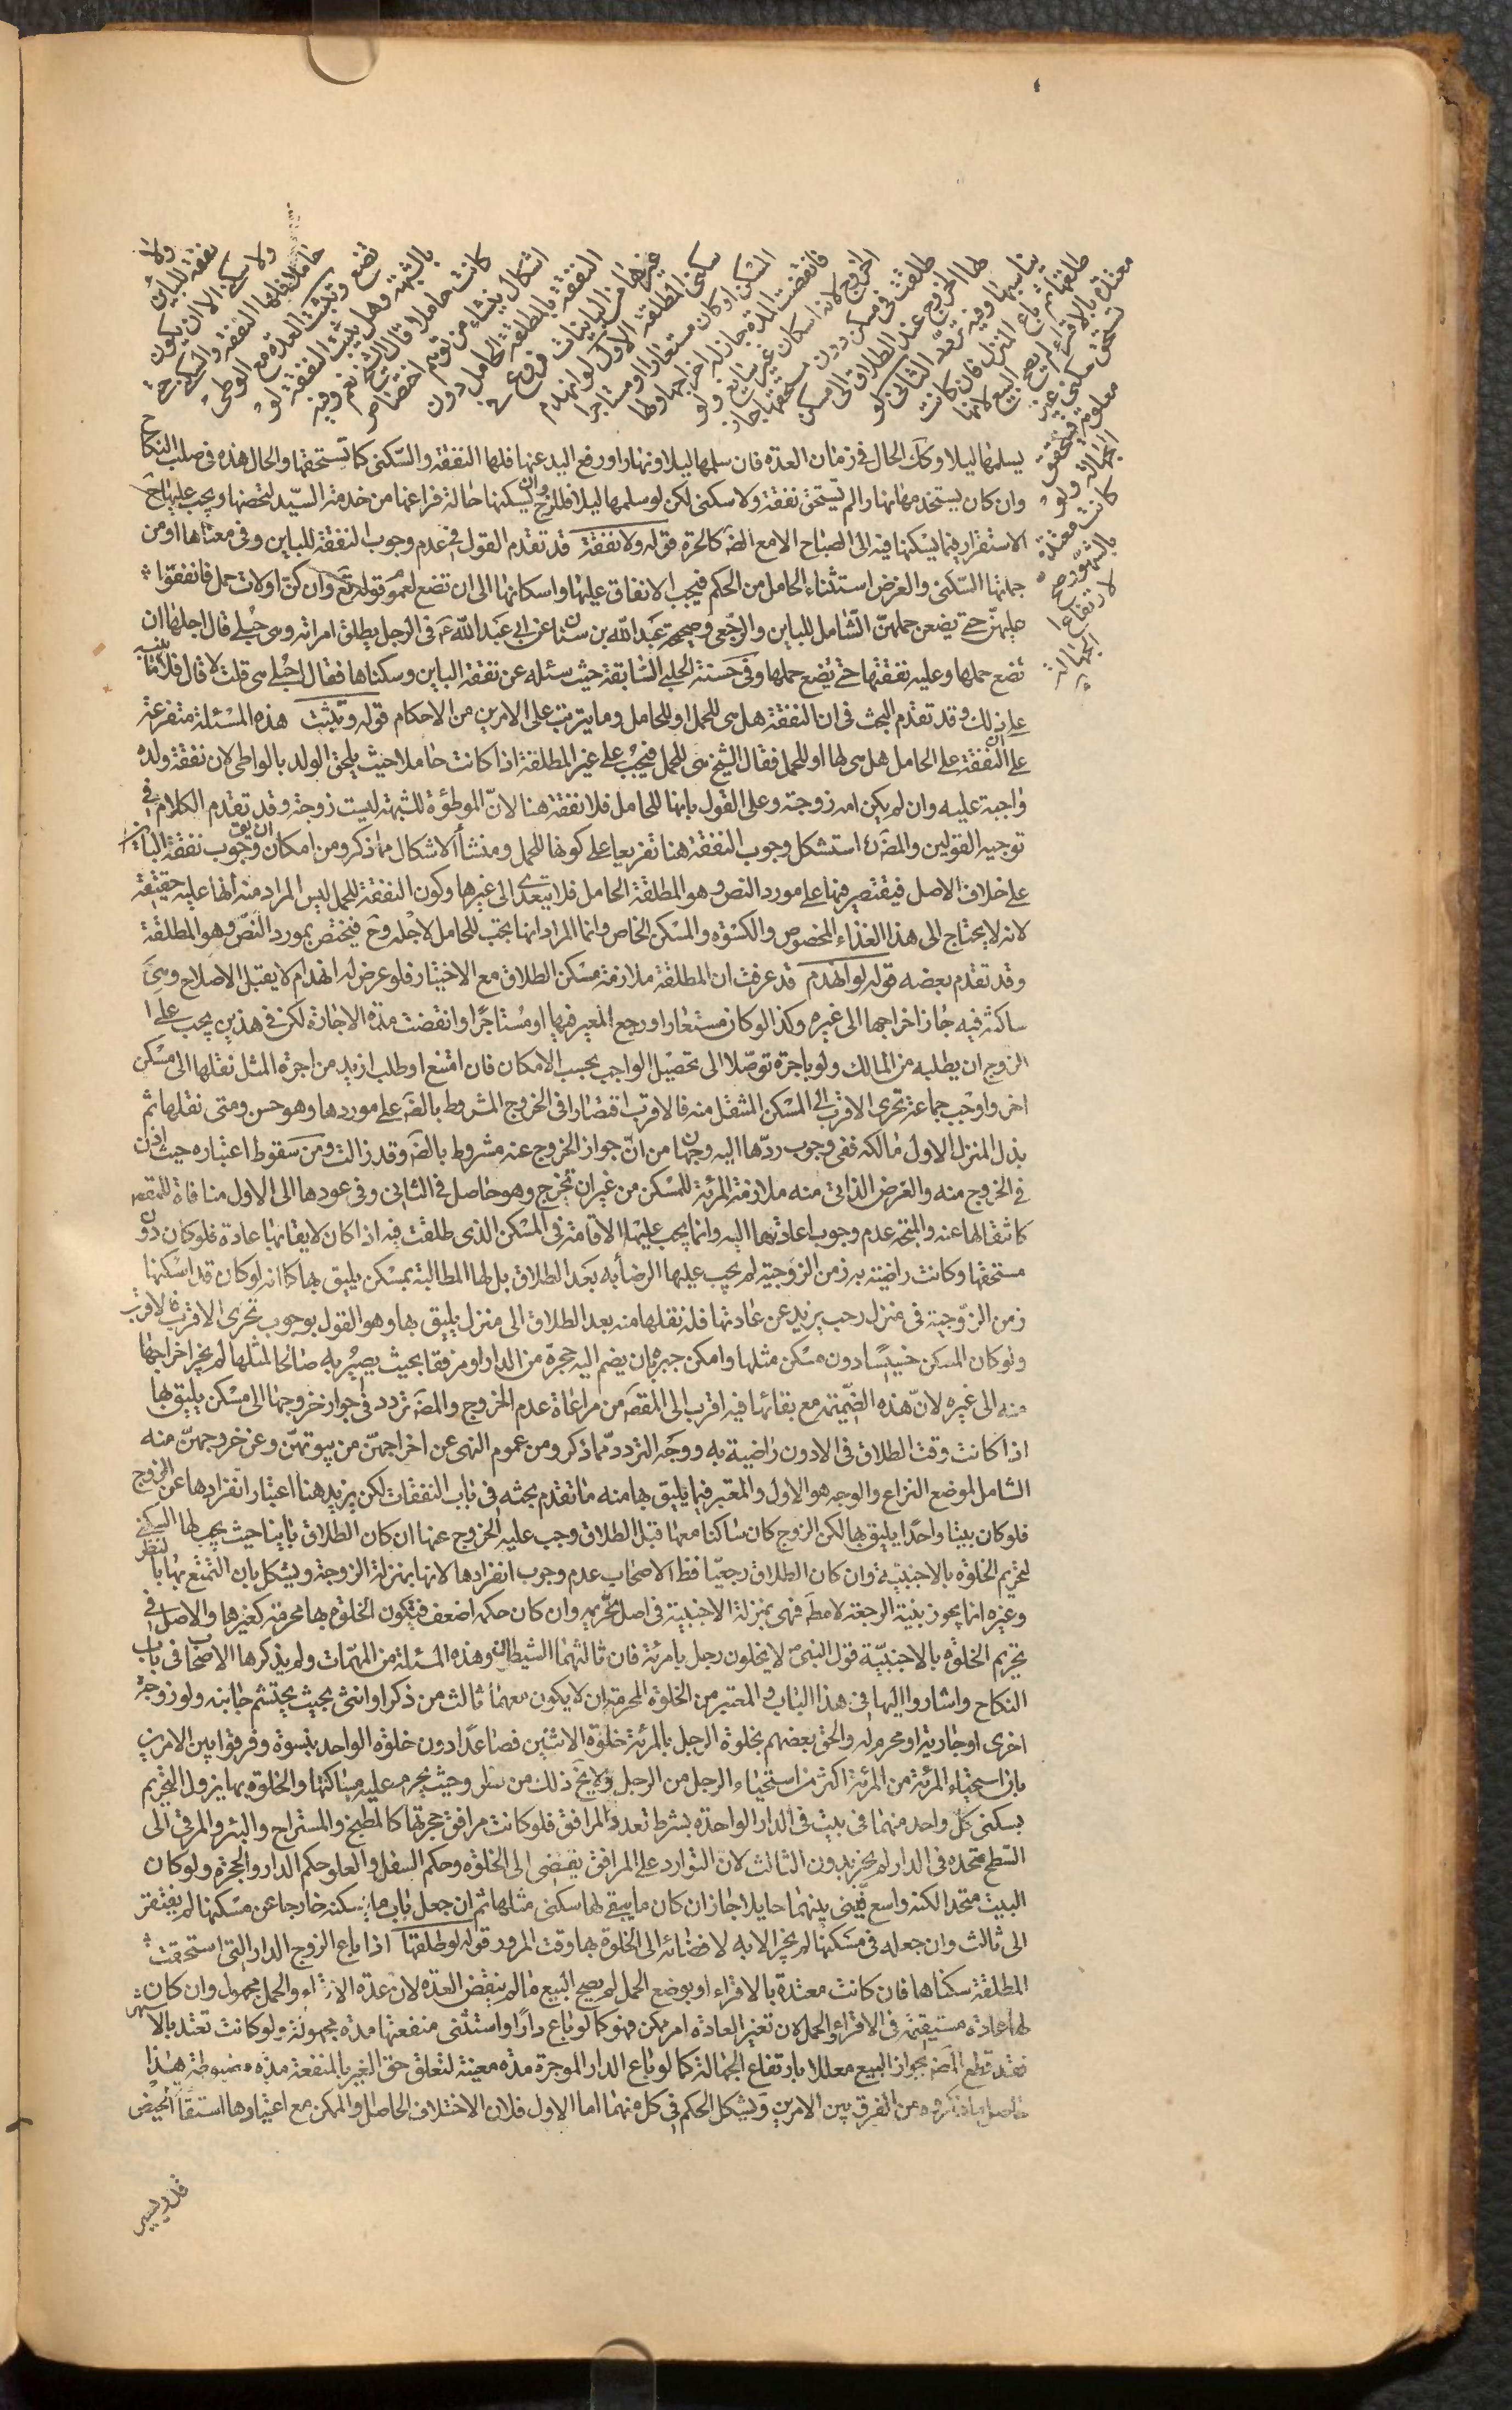 ولا
نفقة للباين
ولا سكنى الا ان يكون
حاملا فلها النفقة والسكنى حتى
تضع وتثبت العدة مع الوطئ
بالشبهة وهل يثبت النفقة لو
كانت حاملا قال الشيخ نعم وفيه
اشكال ينشاء من توهم اختصاص
النفقة بالمطلقة الحامل دون
غيرها من البائنات فروع في
سكنى المطلقة الاول لو انهدم
المسكن او كان مستعارا او مستاجرا
فانقضت المدة جاز له اخراجها ولها
الخروج لانه اسكان غير سايغ ولو
طلقت في مسكن دون مستحقها جاز
لها الخروج عند الطلاق الى مسكن
يناسبها وفيه تردد الثانى لو
طلقها ثم باع المنزل فان كانت
معتدة بالاقراء لم يصح البيع لانها
تستحق سكنى غير
معلومة فتحقق
الجهالة ولو
كانت معتدة
بالشهور صح
لارتفاع
الجهالة
يسلمها ليلا وكك الحال في زمان العدة فان سلمها ليلا ونهارا ورفع اليد عنها فلها النفقة والسكنى كما تستحقها والحال هذه في صلب النكاح
وان كان يستخدمها نهارا لم تستحق نفقة ولا سكنى لكن لو سلمها ليلا فللزوج ان يسكنها حالة فراغها من خدمة السيد لتحصنها ويجب عليها ح
الاستقرار فيما يسكنها فيه الى الصباح الا مع الضه كالحرة قوله ولا نفقة قد تقدم القول في عدم وجوب النفقة للباين وفى معناها او من
جملتها السكنى والغرض استثناء الحامل من الحكم فيجب الانفاق عليها واسكانها الى ان تضع لعموم قوله تع وان كن اولات حمل فانفقوا
عليهن حتى يضعن حملهن الشامل للباين والرجعى وصحيحة عبد الله بن سنان عن ابى عبد الله ع في الرجل يطلق امراته وهى حبلى قال اجلها ان
تضع حملها وعليه نفقتها حتى يضع حملها وفى حسنة الحلبى السابقة حيث سئله عن نفقة الباين وسكناها فقال احبلى هى قلت لا قال فلا تنبيه
على ذلك وقد تقدم البحث في ان النفقة هل هى للحمل او للحامل وما يترتب على الامرين من الاحكام قوله وتثبت هذه المسئلة متفرعة
على ان النفقة على الحامل هل هى لها او للحمل فقال الشيخ هى للحمل فيجب على غير المطلقة اذا كانت حاملا حيث يلحق الولد بالواطى لان نفقة ولده
واجبة عليه وان لم يكن امه زوجته وعلى القول بانها للحامل فلا نفقة هنا لان الموطؤة للشبهة ليست زوجة وقد تقدم الكلام في
توجيه القولين والمصه استشكل وجوب النفقة هنا تفريعا على كونها للحمل ومنشأ الاشكال مما ذكر ومن امكان ان يق وجوب نفقة الباين
على خلاف الاصل فيقتصر فيها على مورد النص وهو المطلقة الحامل فلا يتعدى الى غيرها وكون النفقة للحمل ليس المراد منه انها عليه حقيقة
لانه لا يحتاج الى هذا الغذاء المخصوص والكسوة والمسكن الخاص وانما المراد انها يجب للحامل لاجله وح فيختص بمورد النص وهو المطلقة
وقد تقدم بعضه قوله لو انهدم قد عرفت ان المطلقة ملازمة مسكن الطلاق مع الاختيار فلو عرض له انهدام لا يقبل الاصلاح وهى
ساكنة فيه جاز اخراجها الى غيره وكذا لو كان مستعارا ورجع المعير فيها او مستاجرا وانقضت مدة الاجارة لكن في هذين يجب على
الزوج ان يطلبه من المالك ولو باجرة توصلا الى تحصيل الواجب بحسب الامكان فان امتنع او طلب ازيد من اجرة المثل نقلها الى مسكن
اخر واوجب جماعة تحرى الاقرب الى المسكن المنتقل منه فالاقرب اقتصارا فى الخروج المشروط بالضه على موردها وهو حسن ومتى نقلها ثم
بذل المنزل الاول مالكه ففى وجوب ردها اليه وجهان من ان جواز الخروج عنه مشروط بالضه وقد زالت ومن سقوط اعتباره حيث اذن
في الخروج منه والغرض الذاتى منه ملازمة المرئة للمسكن من غير ان تخرج وهو حاصل في الثانى وفى عودها الى الاول منافاة للمقصه
كانتقالها عنه والمتجه عدم وجوب اعادتها اليه وانما يجب عليها الاقامة في المسكن الذى طلقت فيه اذا كان لايقا بها عادة فلو كان دون
مستحقها وكانت راضية به زمن الزوجية لم يجب عليها الرضا به بعد الطلاق بل لها المطالبة بمسكن يليق بها كما انه لو كان قد اسكنها
زمن الزوجية في منزل رحب يزيد عن عادتها فله نقلها منه بعد الطلاق الى منزل يليق بها وهو القول بوجوب تحرى الاقرب فالاقرب
ولو كان المسكن خسيسا دون مسكن مثلها وامكن جبره بان يضم اليه حجرة من الدار او مرفقا بحيث يصير به صالحا لمثلها لم يجز اخراجها
منه الى غيره لان هذه الضميمة مع بقائها فيه اقرب الى المقصه من مراعاة عدم الخروج والمصه تردد في جواز خروجها الى مسكن يليق بها
اذا كانت وقت الطلاق في الادون راضية به ووجه التردد مما ذكر ومن عموم النهى عن اخراجهن من بيوتهن وعن خروجهن منه
الشامل لموضع النزاع والوجه هو الاول والمعتبر فيما يليق بها منه ما تقدم بحثه في باب النفقات لكن يزيد هنا اعتبار انفرادها عن الزوج
فلو كان بيتا واحدا يليق بها لكن الزوج كان ساكنا معها قبل الطلاق وجب عليه الخروج عنها ان كان الطلاق باينا حيث يجب لها السكنى
لتحريم الخلوة بالاجنبية وان كان الطلاق رجعيا فظ الاصحاب عدم وجوب انفرادها لانها بمنزلة الزوجة ويشكل بان التمتع بها بالنظر
وغيره انما يجوز بنية الرجعة لا مطه فهى بمنزلة الاجنبية في اصل تحريمه وان كان حكمه اضعف فيكون الخلوة بها محرمة كغيرها والاصل في
تحريم الخلوة بالاجنبية قول النبى ص لا يخلون رجل بامرئة فان ثالثهما الشيطان وهذه المسئلة من المهمات ولم يذكرها الاصحاب في باب
النكاح واشاروا اليها في هذا الباب والمعتبر من الخلوة المحرمة ان لا يكون معهما ثالث من ذكر او انثى بحيث يحتشم جانبه ولو زوجة
اخرى او جارية او محرم له والحق بعضهم بخلوة الرجل بالمرئة خلوة الاثنين فصاعدا دون خلوة الواحد بنسوة وفرقوا بين الامرين
بان استحياء المرئة من المرئة اكثر من استحياء الرجل من الرجل ولا يخ ذلك من نظر وحيث يحرم عليه مساكنتها والخلوة بها يزول التحريم
بسكنى كل واحد منهما في بيت في الدار الواحدة بشرط تعدد المرافق فلو كانت مرافق حجرتها كالمطبخ والمستراح والبئر والمرقى الى
السطح متحدة في الدار لم يجز بدون الثالث لان التوارد على المرافق يفضى الى الخلوة وحكم السفل والعلو حكم الدار والحجرة ولو كان
البيت متحدا لكنه واسع فبنى بينهما حايلا جاز ان كان ما يبقى لها سكنى مثلها ثم ان جعل باب ما يسكنه خارجا عن مسكنها لم يفتقر
الى ثالث وان جعله في مسكنها لم يجز الا به لافضائه الى الخلوة بها وقت المرور قوله لو طلقها اذا باع الزوج الدار التى استحقت
المطلقة سكناها فان كانت معتدة بالاقراء او بوضع الحمل لم يصح البيع ما لم ينقض العدة لان عدة الاقراء والحمل مجهول وان كان
لها عادة مستقيمة في الاقراء والحمل لان تغير العادة امر ممكن فهو كما لو باع دارا واستثنى منفعتها مدة مجهولة ولو كانت تعتد بالاشهر
فقد قطع المصه بجواز البيع معللا بارتفاع الجهالة كما لو باع الدار الموجرة مدة معينة لتعلق حق الغير بالمنفعة مدة مضبوطة هذا
حاصل ما ذكروه من الفرق بين الامرين ويشكل الحكم في كل منهما اما الاول فلان الاختلاف الحاصل والممكن مع اعتيادها استقامة الحيض
قدر يسير